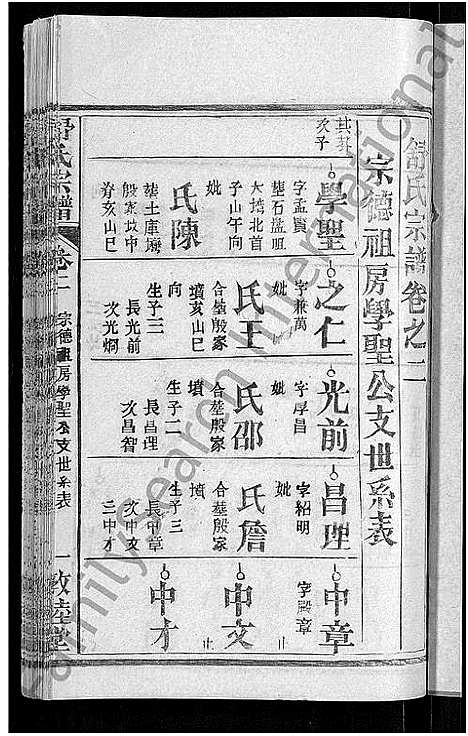 舒氏宗譜卷之二
宗德祖房學聖公支世系表
其芬
次子
學聖
字孟賢
塟石盤咀
大塆北首
子山午向
妣
氏陳
塟土庫塆
殷家坟中
脊亥山巳
之仁
字兼萬
妣
氏王
合塟殷家
墳亥山巳
向
生子二
長光前
次光炯
光前
字厚昌
妣
氏邵
合塟殷家
墳
生子二
長昌理
次昌智
昌理
字紹明
妣
氏詹
合塟殷家
墳
生子三
長中章
次中文
三中才
中章
字殿章
止
中文
止
中才
舒氏宗譜
卷二
宗德祖房學聖公支世系表
一
敦睦堂
Family Search International